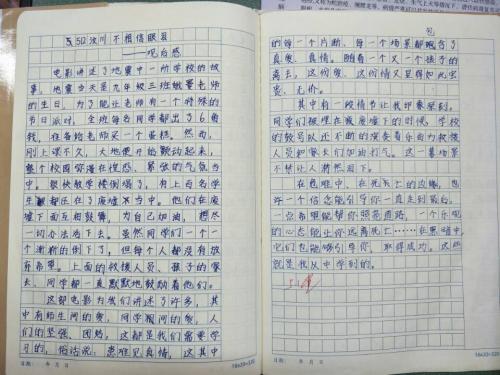 5.5D汶川 不相信眼泪
——观后感
电影讲述了地震中一所学校的故
事。地震当天是九年级三班敏董老师
的生日，为了能让老师有一个特殊的
节日派对，全班每名同学都出了6角
钱，准备给老师买一个蛋糕。然而，
刚上课不久，大地便开始颤动起来，
整个校园弥漫在惶恐、紧张的气氛当
中。很快教学楼倒塌了，有上百名学
生都压在了废墟当中。他们在废
墟下面互相鼓舞，为自己加油，想尽
一切办法活下去。虽然同学们一个一
个渐渐的倒下了，但每个人都没有放
弃希望。上面的救援人员、孩子的家
长、同学都一直默默地鼓励着他们。
这部电影为我们讲述了许多，其
中有师生间的爱，同学般间的爱，人
们的坚强、团结，这都是我们需要学
习的，俗话说：患难见真情，这其中
日期： 年 月 日
16×20=320
的每一个片断、每一个场景都饱含了
真爱、真情。随着一个又一个孩子的
离去，这份爱、这份情又显得如此宝
贵、无价。
其中有一段情节让我印象深刻，
同学们被埋在废墟下的时候，学校
的鼓号队还不断的演奏着乐曲为救援
人员和家长们加油打气。这一幕场景
不禁让人潸然泪下。
在危难中，在死亡的边缘，也
许一个信念能引导你一直走到最后，
一点希望能帮你照亮道路，一个乐观
的心态能让你远离死亡……在黑暗中，
它们也能够引导你，取得成功。这些
就是我从中学到的。
日期： 年 月 日
16×20=320